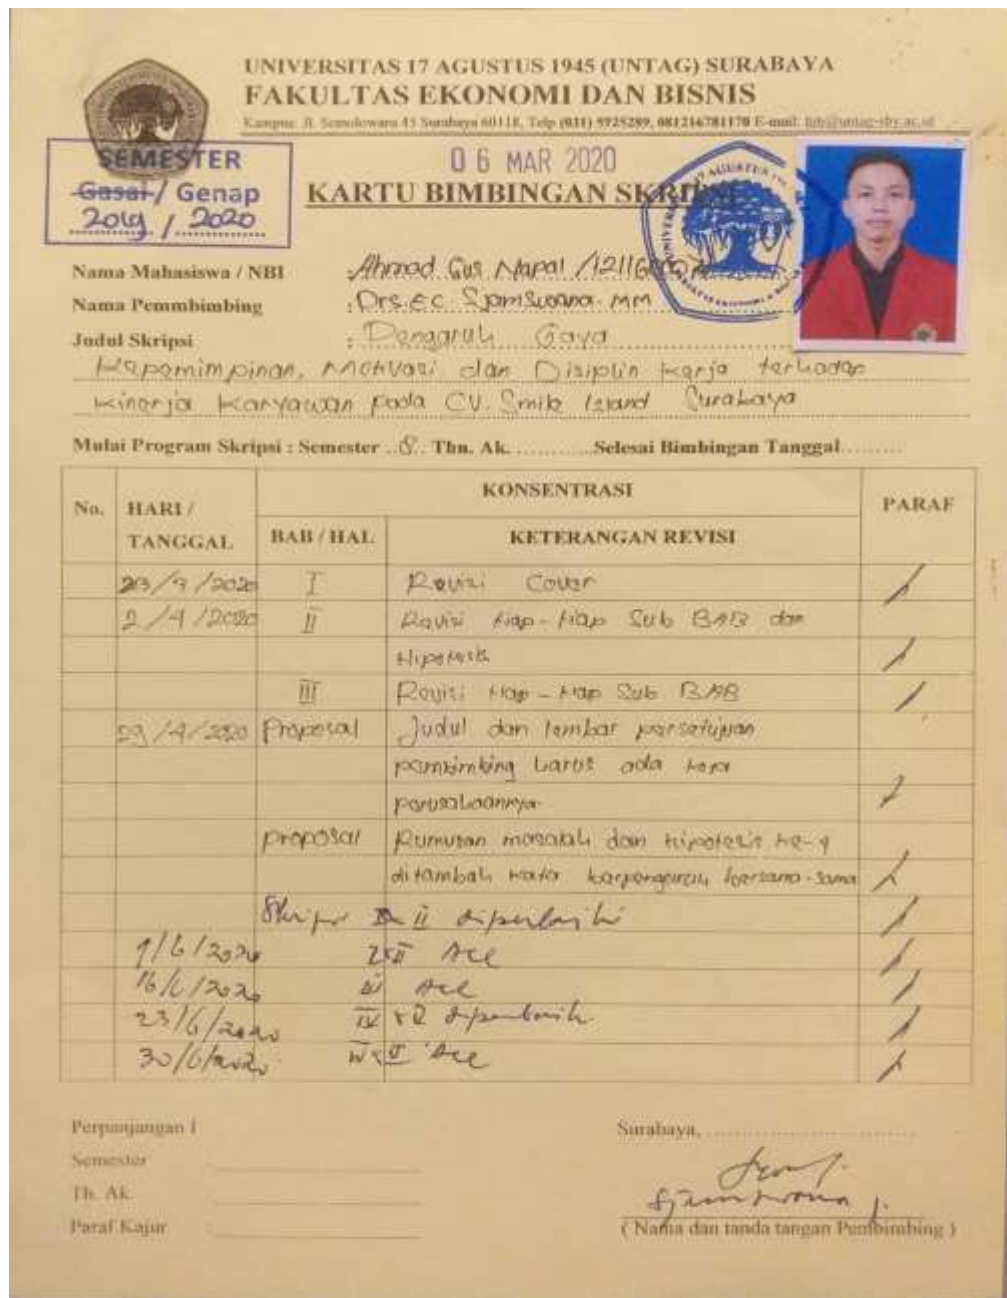 UNIVERSITAS 17 AGUSTUS 1945 (UNTAG) SURABAYA
FAKULTAS EKONOMI DAN BISNIS
Kampus: Jl. Semolowaru 45 Surabaya 60118, Telp (031) 5925289, 081216781170 E-mail: feb@untag-sby.ac.id
SEMESTER
Gasal / Genap
2019 / 2020
06 MAR 2020
KARTU BIMBINGAN SKRIPSI
Nama Mahasiswa / NBI : Ahmad Gus Napal /
Nama Pemmbimbing : Drs.EC. Sjamsuona. MM
Judul Skripsi : Pengaruh Gaya
Kepemimpinan, Motivasi dan Disiplin Kerja terhadap
Kinerja Karyawan pada CV. Smile Island Surabaya
Mulai Program Skripsi : Semester ..8.. Thn. Ak. ............Selesai Bimbingan Tanggal.........
No. HARI / TANGGAL KONSENTRASI PARAF
BAB / HAL KETERANGAN REVISI
/2020 I Revisi Cover
2/4/2020 II Revisi tiap-tiap Sub BAB dan
Hipotesis
III Revisi tiap-tiap Sub BAB
29/4/2020 Proposal Judul dan lembar persetujuan
pembimbing harus ada
perusahaannya
proposal Rumusan masalah dan hipotesis ke-4
ditambah kata berpengaruh bersama-sama
Skripsi II diperbaiki
/6/2020 II Acc
16/6/2020 III Acc
23/6/2020 IV & V diperbaiki
30/6/2020 IV & V Acc
Perpanjangan I
Semester
Th. Ak.
Paraf Kajur :
Surabaya, ................
( Nama dan tanda tangan Pembimbing )